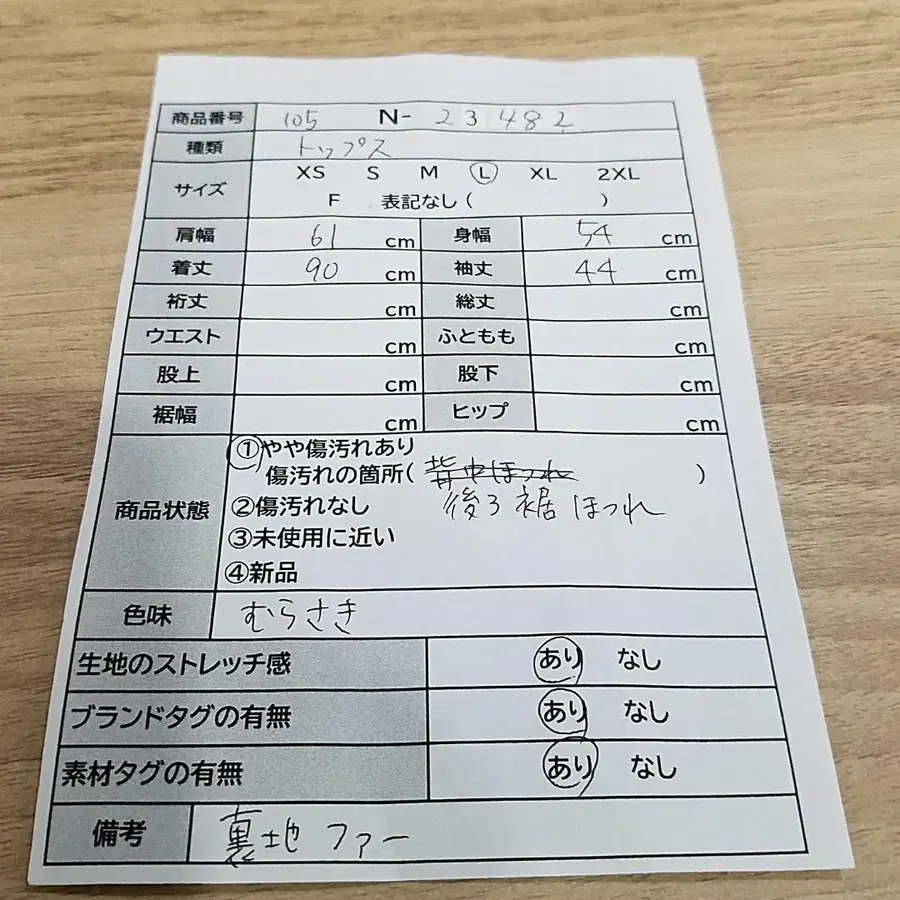 商品番号 105 N- 23482
種類 トップス
サイズ XS S M L XL 2XL
F 表記なし( )
肩幅 61 cm 身幅 54 cm
着丈 90 cm 袖丈 44 cm
裄丈 cm 総丈 cm
ウエスト cm ふともも cm
股上 cm 股下 cm
裾幅 cm ヒップ cm
商品状態 ①やや傷汚れあり
傷汚れの箇所( 背中ほつれ )
②傷汚れなし 後ろ裾ほつれ
③未使用に近い
④新品
色味 むらさき
生地のストレッチ感 あり なし
ブランドタグの有無 あり なし
素材タグの有無 あり なし
備考 裏地ファー